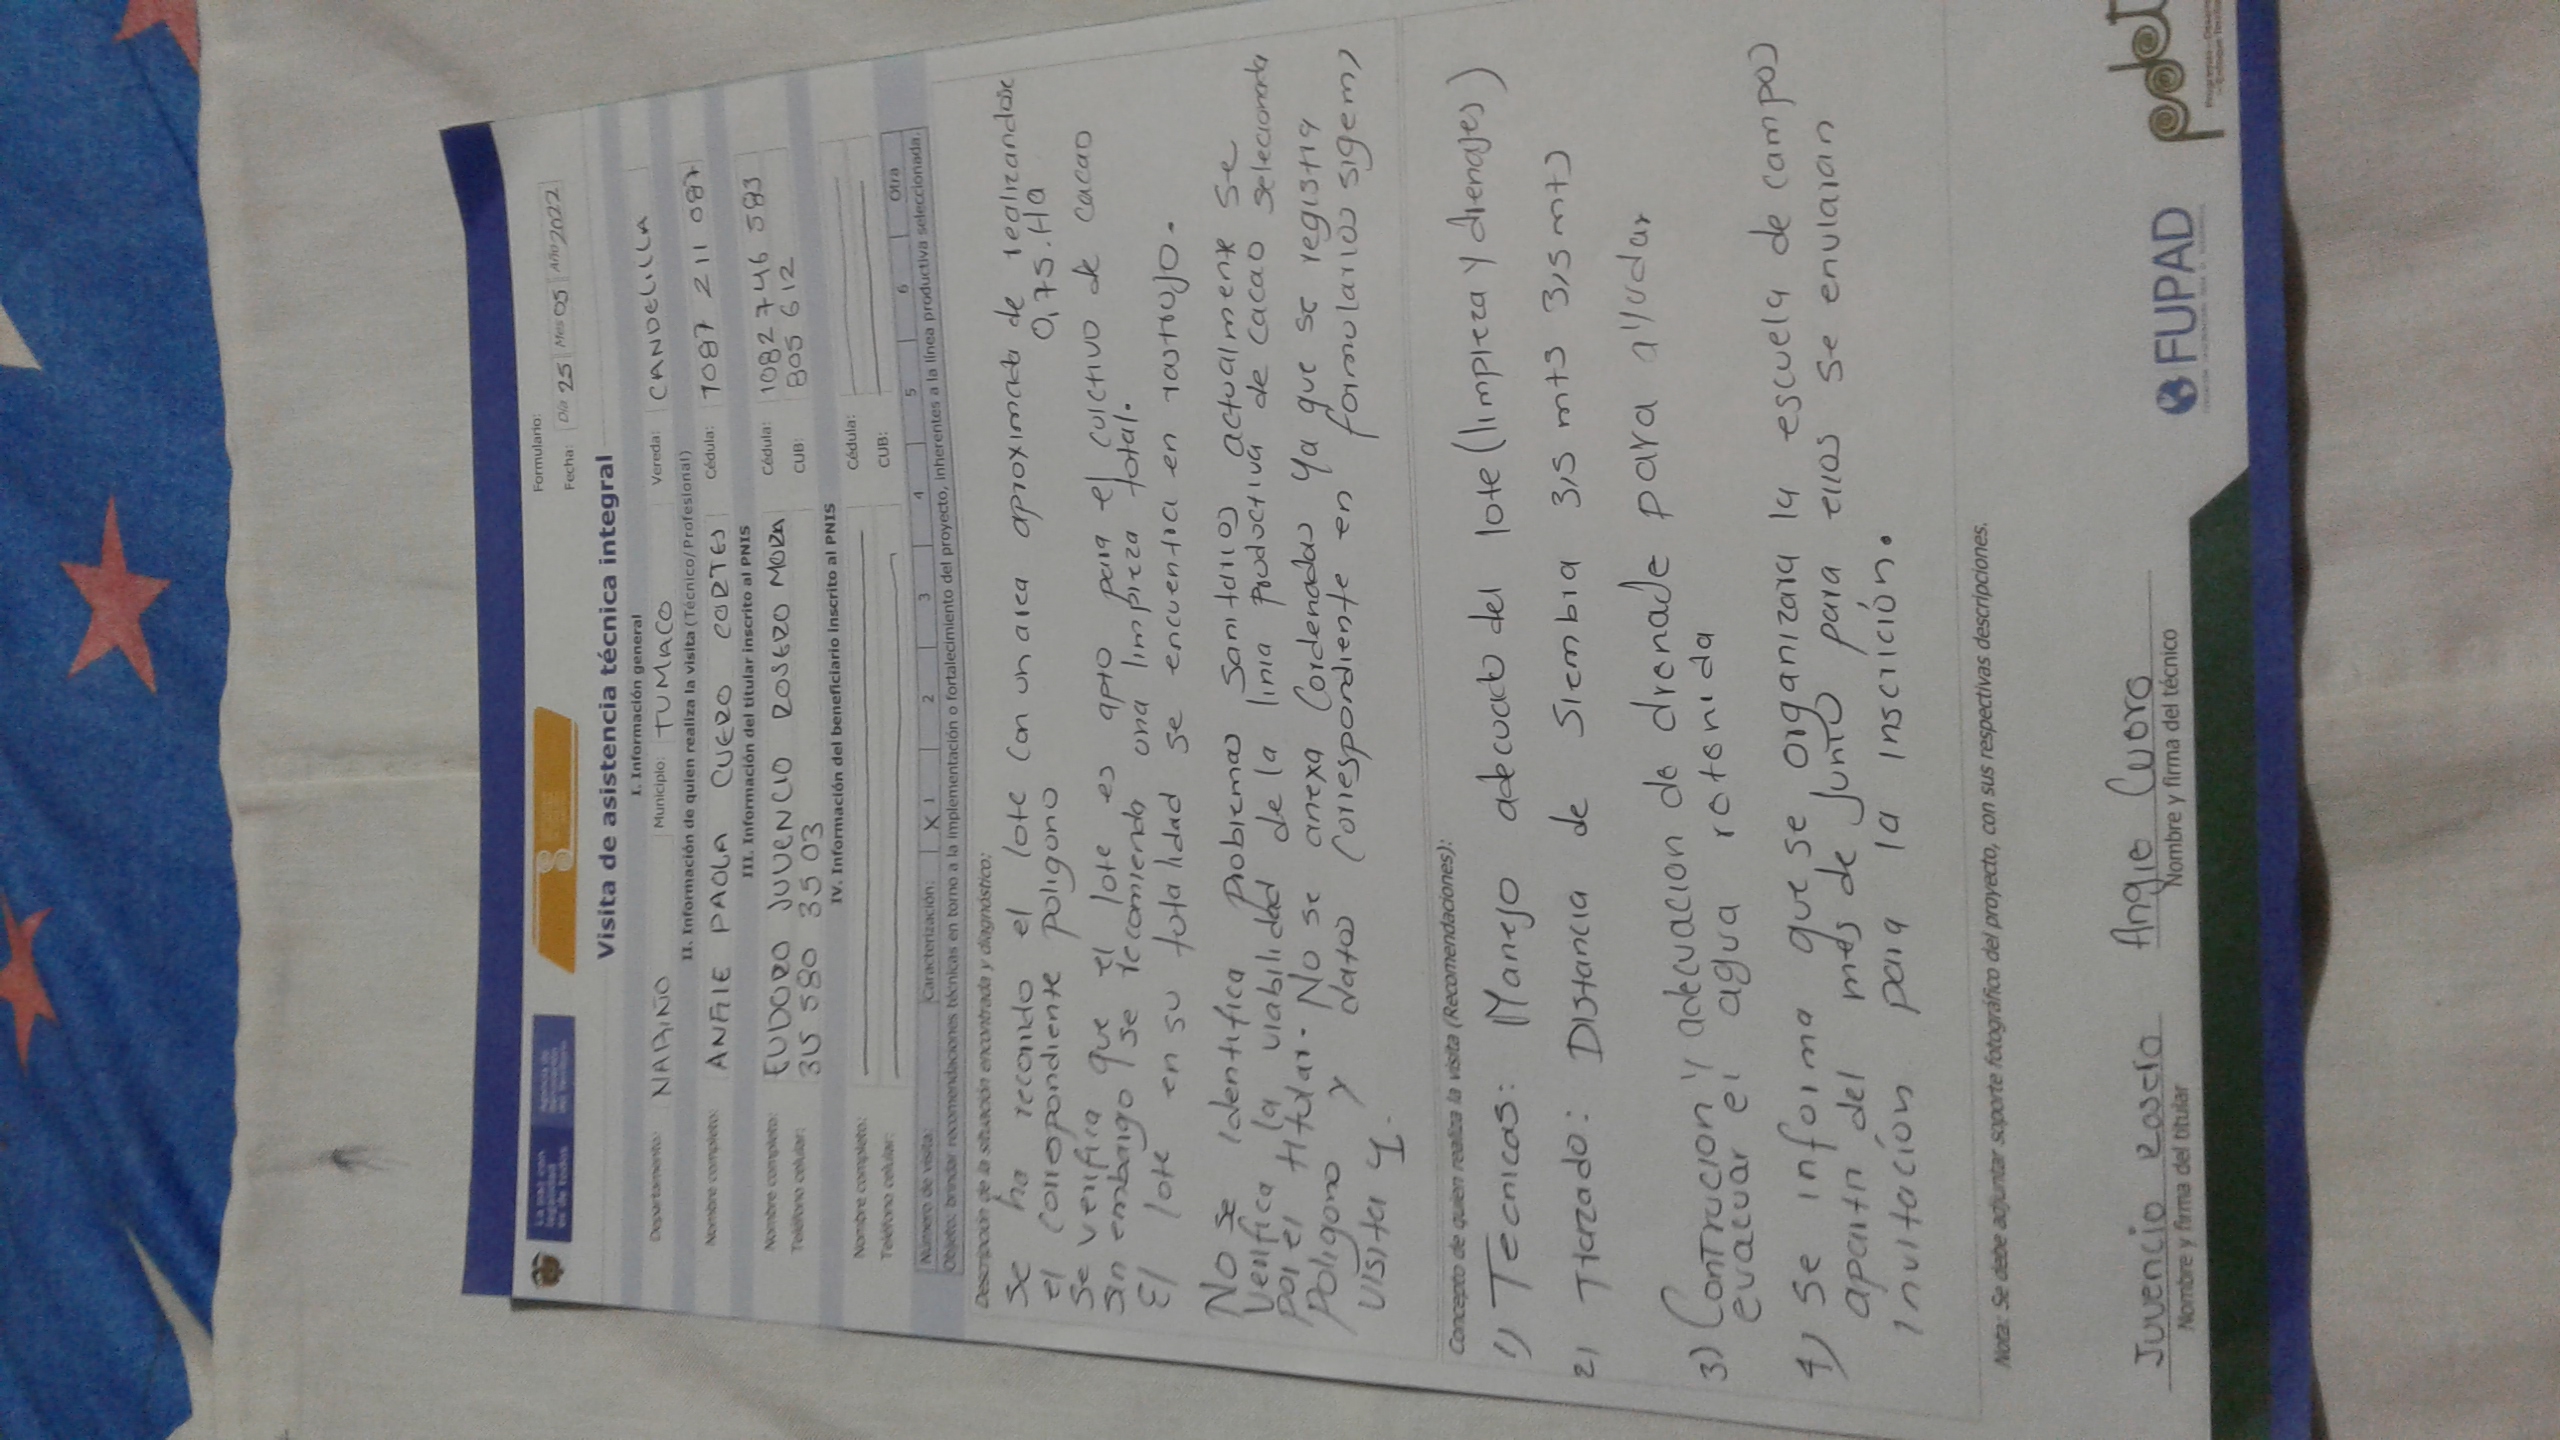 La paz con
legalidad
es de todos
Agencia de
Renovación
del Territorio
Formulario:
Fecha: Día 25 Mes 05 Año 2022
Visita de asistencia técnica integral
I. Información general
Departamento: NARIÑO Municipio: TUMACO Vereda: CANDELILLA
II. Información de quien realiza la visita (Técnico/Profesional)
Nombre completo: ANGIE PAOLA CUERO CORTES Cédula: 1087 211 087
III. Información del titular inscrito al PNIS
Nombre completo: EUDORO JUVENCIO ROSERO MORA Cédula: 1082 746 583
Teléfono celular: 315 580 35 03 CUB: 805 612
IV. Información del beneficiario inscrito al PNIS
Nombre completo: Cédula:
Teléfono celular: CUB:
Número de visita: Caracterización: X 1 2 3 4 5 6 Otra
Objeto: brindar recomendaciones técnicas en torno a la implementación o fortalecimiento del proyecto, inherentes a la línea productiva seleccionada.
Descripción de la situación encontrada y diagnóstico:
Se ha recorrido el lote con un area aproximada de realizandose
el correspondiente poligono 0,75.Ha
Se verifica que el lote es apto para el cultivo de cacao
Sin embargo se recomienda una limpieza total.
El lote en su totalidad se encuentra en rastrojo.
No se identifica problemas Sanitarios actualmente se
Verifica la viabilidad de la linia productiva de cacao seleccionada
por el titular. No se anexa Cordenadas ya que se registra
Poligono y datos correspondiente en formularios sigem,
visita 1.
Concepto de quien realiza la visita (Recomendaciones):
1) Tecnicas: Manejo adecuado del lote (limpieza y drenajes)
2) Trazado: Distancia de Siembra 3,5 mts 3,5 mts
3) Contrucion y adecuacion de drenade para ayudar
evacuar el agua retenida
4) Se informa que se organizara la escuela de campos
apartir del mes de Junio para ellos se envularan
invitación para la inscrición.
Nota: Se debe adjuntar soporte fotográfico del proyecto, con sus respectivas descripciones.
Juvencio Rosero Angie Cuero
Nombre y firma del titular Nombre y firma del técnico
FUPAD
pdet